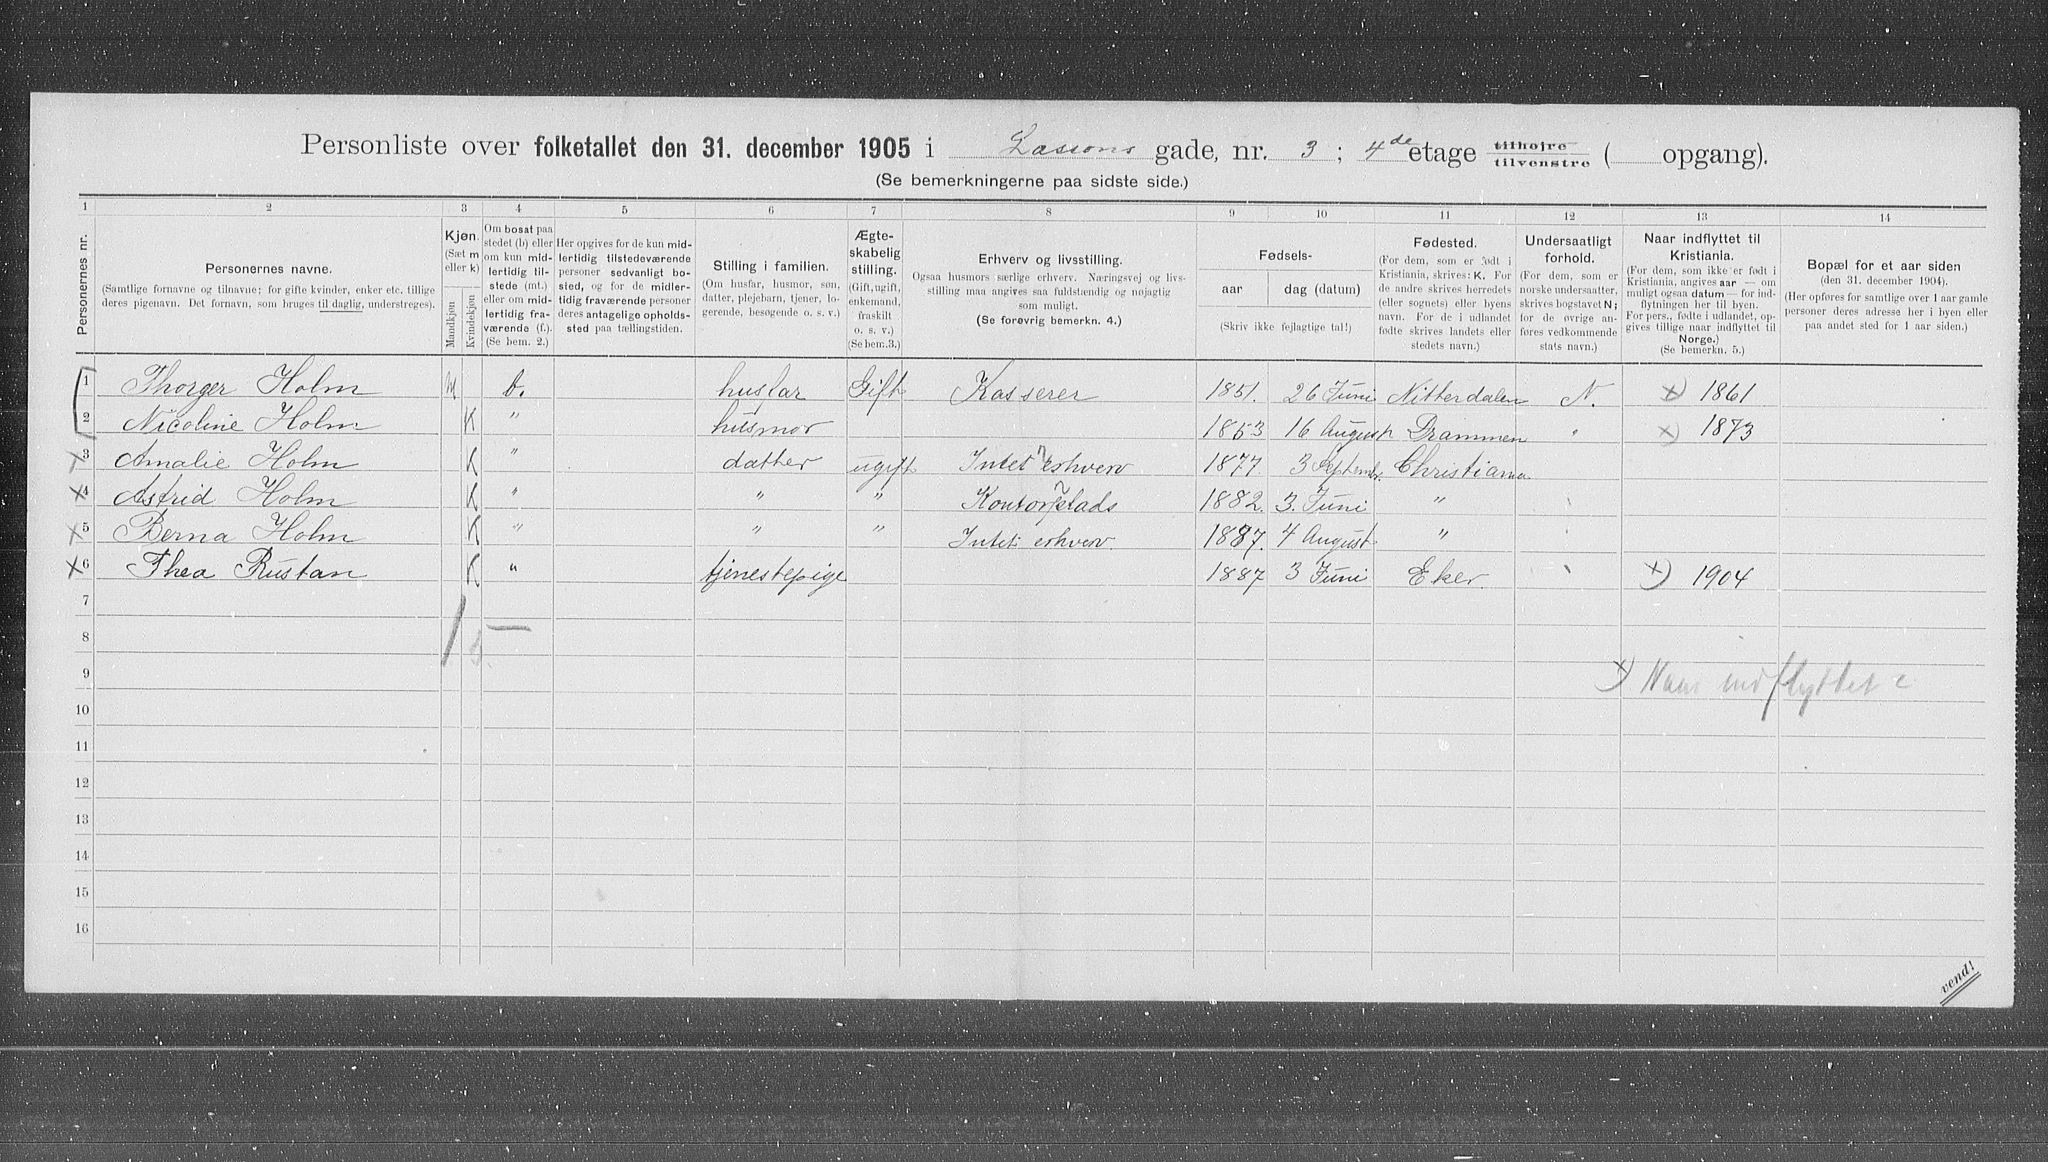 Personliste over folketallet den 31. december 1905 i Lassons gade, nr. 3; 4de etage tilhøjre tilvenstre ( opgang).
(Se bemerkningerne paa sidste side.)
1 2 3 4 5 6 7 8 9 10 11 12 13 14
Personernes nr.
Personernes navne.
(Samtlige fornavne og tilnavne; for gifte kvinder, enker etc. tillige
deres pigenavn. Det fornavn, som bruges til daglig, understreges).
Kjøn.
(Sæt m
eller k)
Mandkjøn
Kvindekjøn
Om bosat paa
stedet (b) eller
om kun mid-
lertidig til-
stede (mt.)
eller om mid-
lertidig fra-
værende (f.).
(Se bem. 2.)
Her opgives for de kun mid-
lertidig tilstedeværende
personer sedvanlig bo-
sted, og for de midler-
tidig fraværende personer
deres antagelige opholds-
sted paa tællingstiden.
Stilling i familien.
(Om husfar, husmor, søn,
datter, plejebarn, tjener, lo-
gerende, besøgende o. s. v.)
Ægte-
skabelig
stilling.
(Gift, ugift,
enkemand,
fraskilt
o. s. v.)
(Se bem. 3.)
Erhverv og livsstilling.
Ogsaa husmors særlige erhverv. Næringsvej og livs-
stilling maa angives saa fuldstændig og nøjagtig
som muligt.
(Se forøvrig bemerkn. 4.)
Fødsels-
aar dag (datum)
(Skriv ikke fejlagtige tal!)
Fødested.
(For dem, som er født i
Kristiania, skrives: K. For
de andre skrives herredets
(eller sognets) eller byens
navn. For de i udlandet
fødte skrives landets eller
stedets navn.)
Undersaatligt
forhold.
(For dem, som er
norske undersaatter,
skrives bogstavet N;
for de øvrige an-
føres vedkommende
stats navn.)
Naar indflyttet til
Kristiania.
(For dem, som ikke er født i
Kristiania, angives aar — om
muligt ogsaa datum — for ind-
flytningen her til byen.
For pers., fødte i udlandet, op-
gives tillige naar indflyttet til
Norge.)
(Se bemerkn. 5.)
Bopæl for et aar siden
(den 31. december 1904).
(Her opføres for samtlige over 1 aar gamle
personer deres adresse her i byen eller
paa andet sted for 1 aar siden.)
1 Thorger Holm M b. husfar Gift Kasserer 1851. 26 Juni Nitterdalen N. x) 1861
2 Nicoline Holm K " husmor 1853 16 August Drammen " x) 1873
x 3 Amalie Holm K " datter ugift Intet erhverv 1877 3 September. Christiania
x 4 Astrid Holm K " " " Kontorplads 1882. 3. Juni "
x 5 Berna Holm K " " " Intet erhverv. 1887. 4 August "
x 6 Thea Rustan K " tjenestepige 1887 3 Juni Eker. " x) 1904
7
8 1 5 —
9 x) Naar indflyttet?
10
11
12
13
14
15
16
vend!